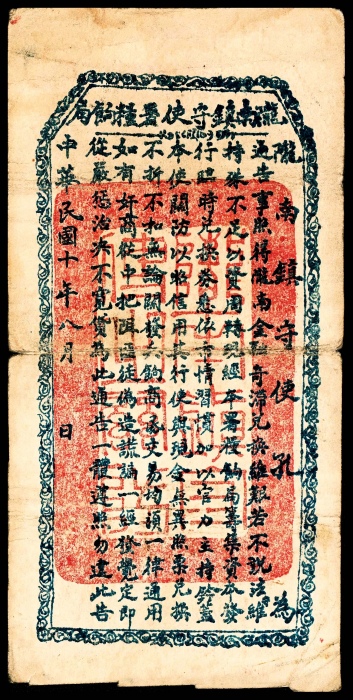 隴南鎮守使署糧餉局
隴南鎮守使孔 為
通告事照得隴南金融奇滯兌換維艱若不設法維
持殊不足以資周轉現經本署糧餉局籌集資本發
行臨時兌換券悉依市情習慣加以官力主持鈐蓋
本使關防以昭信用其行使與現金無異照票兌換
不折不扣無論關發兵餉商家交易均須一律通用
如有奸商從中把阻匪徒偽造謊騙一經發覺定即
從嚴懲治決不寬貸為此通告一體遵照勿違此告
中華民國十年八月 日